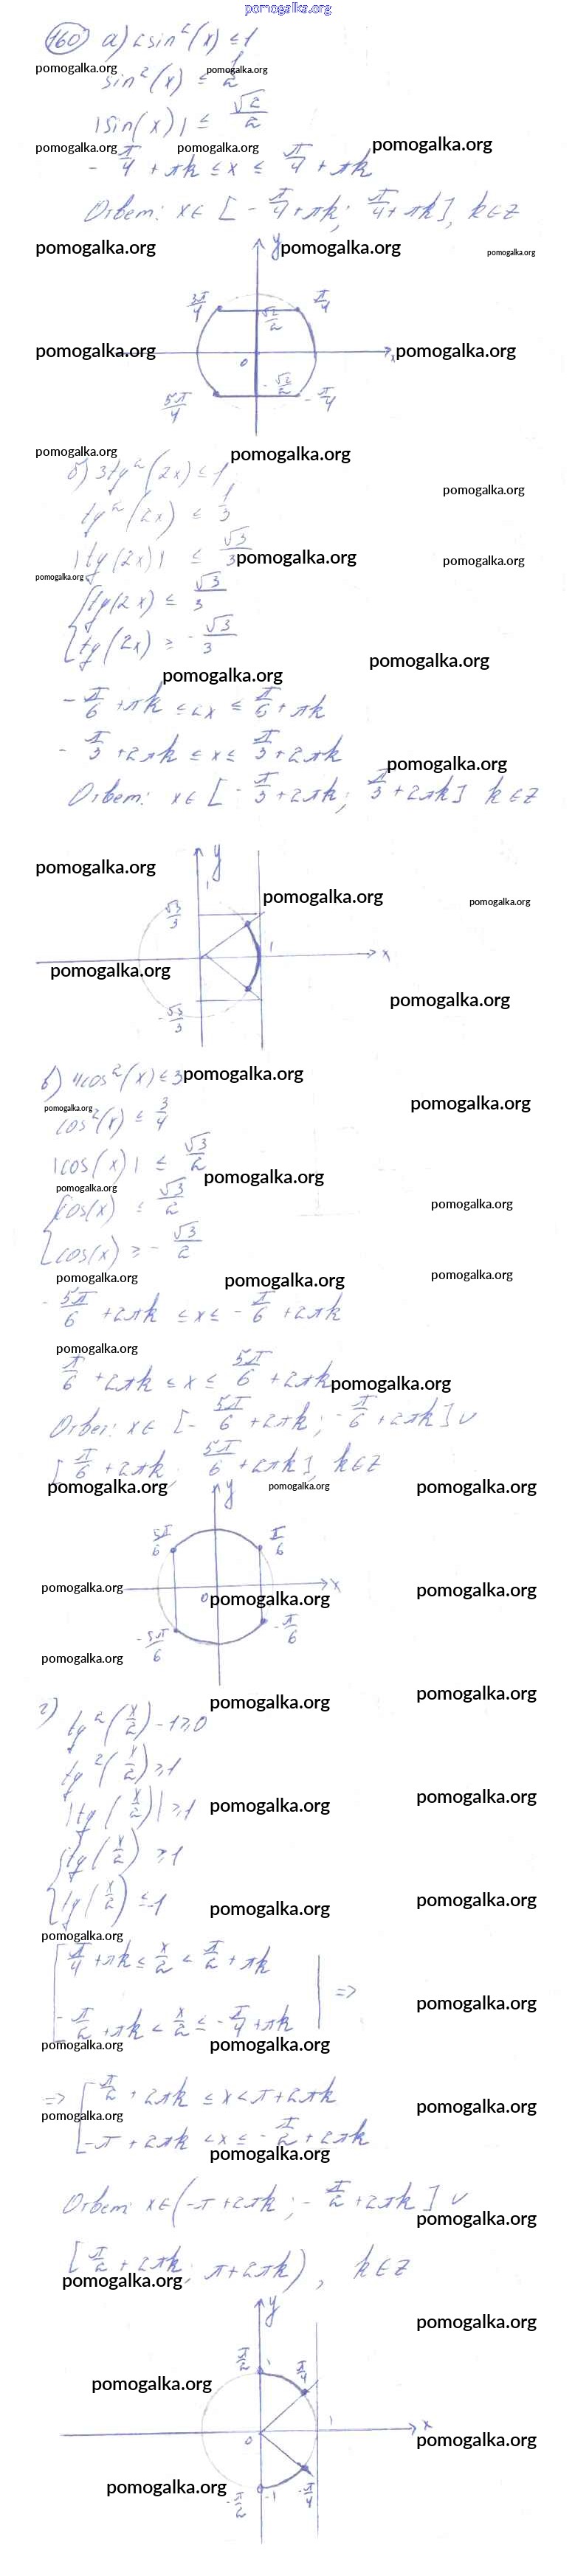 pomogalka.org
160 а) 2sin²(x) ≤ 1
pomogalka.org pomogalka.org
sin²(x) ≤ 1/2
|sin(x)| ≤ √2/2
pomogalka.org pomogalka.org pomogalka.org
- π/4 + πk ≤ x ≤ π/4 + πk
Ответ: x∈ [- π/4 + πk; π/4 + πk], k∈Z
pomogalka.org y pomogalka.org pomogalka.org
3π/4 π/4
√2/2
pomogalka.org 0 x pomogalka.org
5π/4 - √2/2 - π/4
pomogalka.org pomogalka.org
б) 3tg²(2x) ≤ 1
pomogalka.org
tg²(2x) ≤ 1/3
|tg(2x)| ≤ √3/3 pomogalka.org pomogalka.org
pomogalka.org
tg(2x) ≤ √3/3
tg(2x) ≥ - √3/3
pomogalka.org pomogalka.org
- π/6 + πk ≤ 2x ≤ π/6 + πk
- π/3 + 2πk ≤ x ≤ π/3 + 2πk
pomogalka.org
Ответ: x∈ [- π/3 + 2πk; π/3 + 2πk] k∈Z
pomogalka.org y
1 pomogalka.org pomogalka.org
√3/3
1 x
pomogalka.org
pomogalka.org
- √3/3
в) 4cos²(x) ≤ 3 pomogalka.org
pomogalka.org pomogalka.org
cos²(x) ≤ 3/4
|cos(x)| ≤ √3/2
pomogalka.org
pomogalka.org
cos(x) ≤ √3/2 pomogalka.org
cos(x) ≥ - √3/2
pomogalka.org pomogalka.org pomogalka.org
- 5π/6 + 2πk ≤ x ≤ - π/6 + 2πk
pomogalka.org
π/6 + 2πk ≤ x ≤ 5π/6 + 2πk pomogalka.org
Ответ: x∈ [- 5π/6 + 2πk; - π/6 + 2πk] ∪
[π/6 + 2πk; 5π/6 + 2πk], k∈Z
pomogalka.org y pomogalka.org pomogalka.org
5π/6 π/6
pomogalka.org x pomogalka.org
0 pomogalka.org
- 5π/6 - π/6
pomogalka.org
pomogalka.org pomogalka.org
г) tg²(x/2) - 1 ≥ 0
tg²(x/2) ≥ 1
|tg(x/2)| ≥ 1 pomogalka.org pomogalka.org
tg(x/2) ≥ 1
tg(x/2) ≤ -1 pomogalka.org pomogalka.org
pomogalka.org
π/4 + πk ≤ x/2 < π/2 + πk
=> pomogalka.org
- π/2 + πk < x/2 ≤ - π/4 + πk
pomogalka.org pomogalka.org
=> π/2 + 2πk ≤ x < π + 2πk pomogalka.org
pomogalka.org
-π + 2πk < x ≤ - π/2 + 2πk
pomogalka.org
Ответ: x∈(-π + 2πk; - π/2 + 2πk] ∪
pomogalka.org
[π/2 + 2πk; π + 2πk), k∈Z
pomogalka.org
y pomogalka.org
π/2 1 π/4
pomogalka.org
0 1 x
pomogalka.org
pomogalka.org - π/2 -1 - π/4